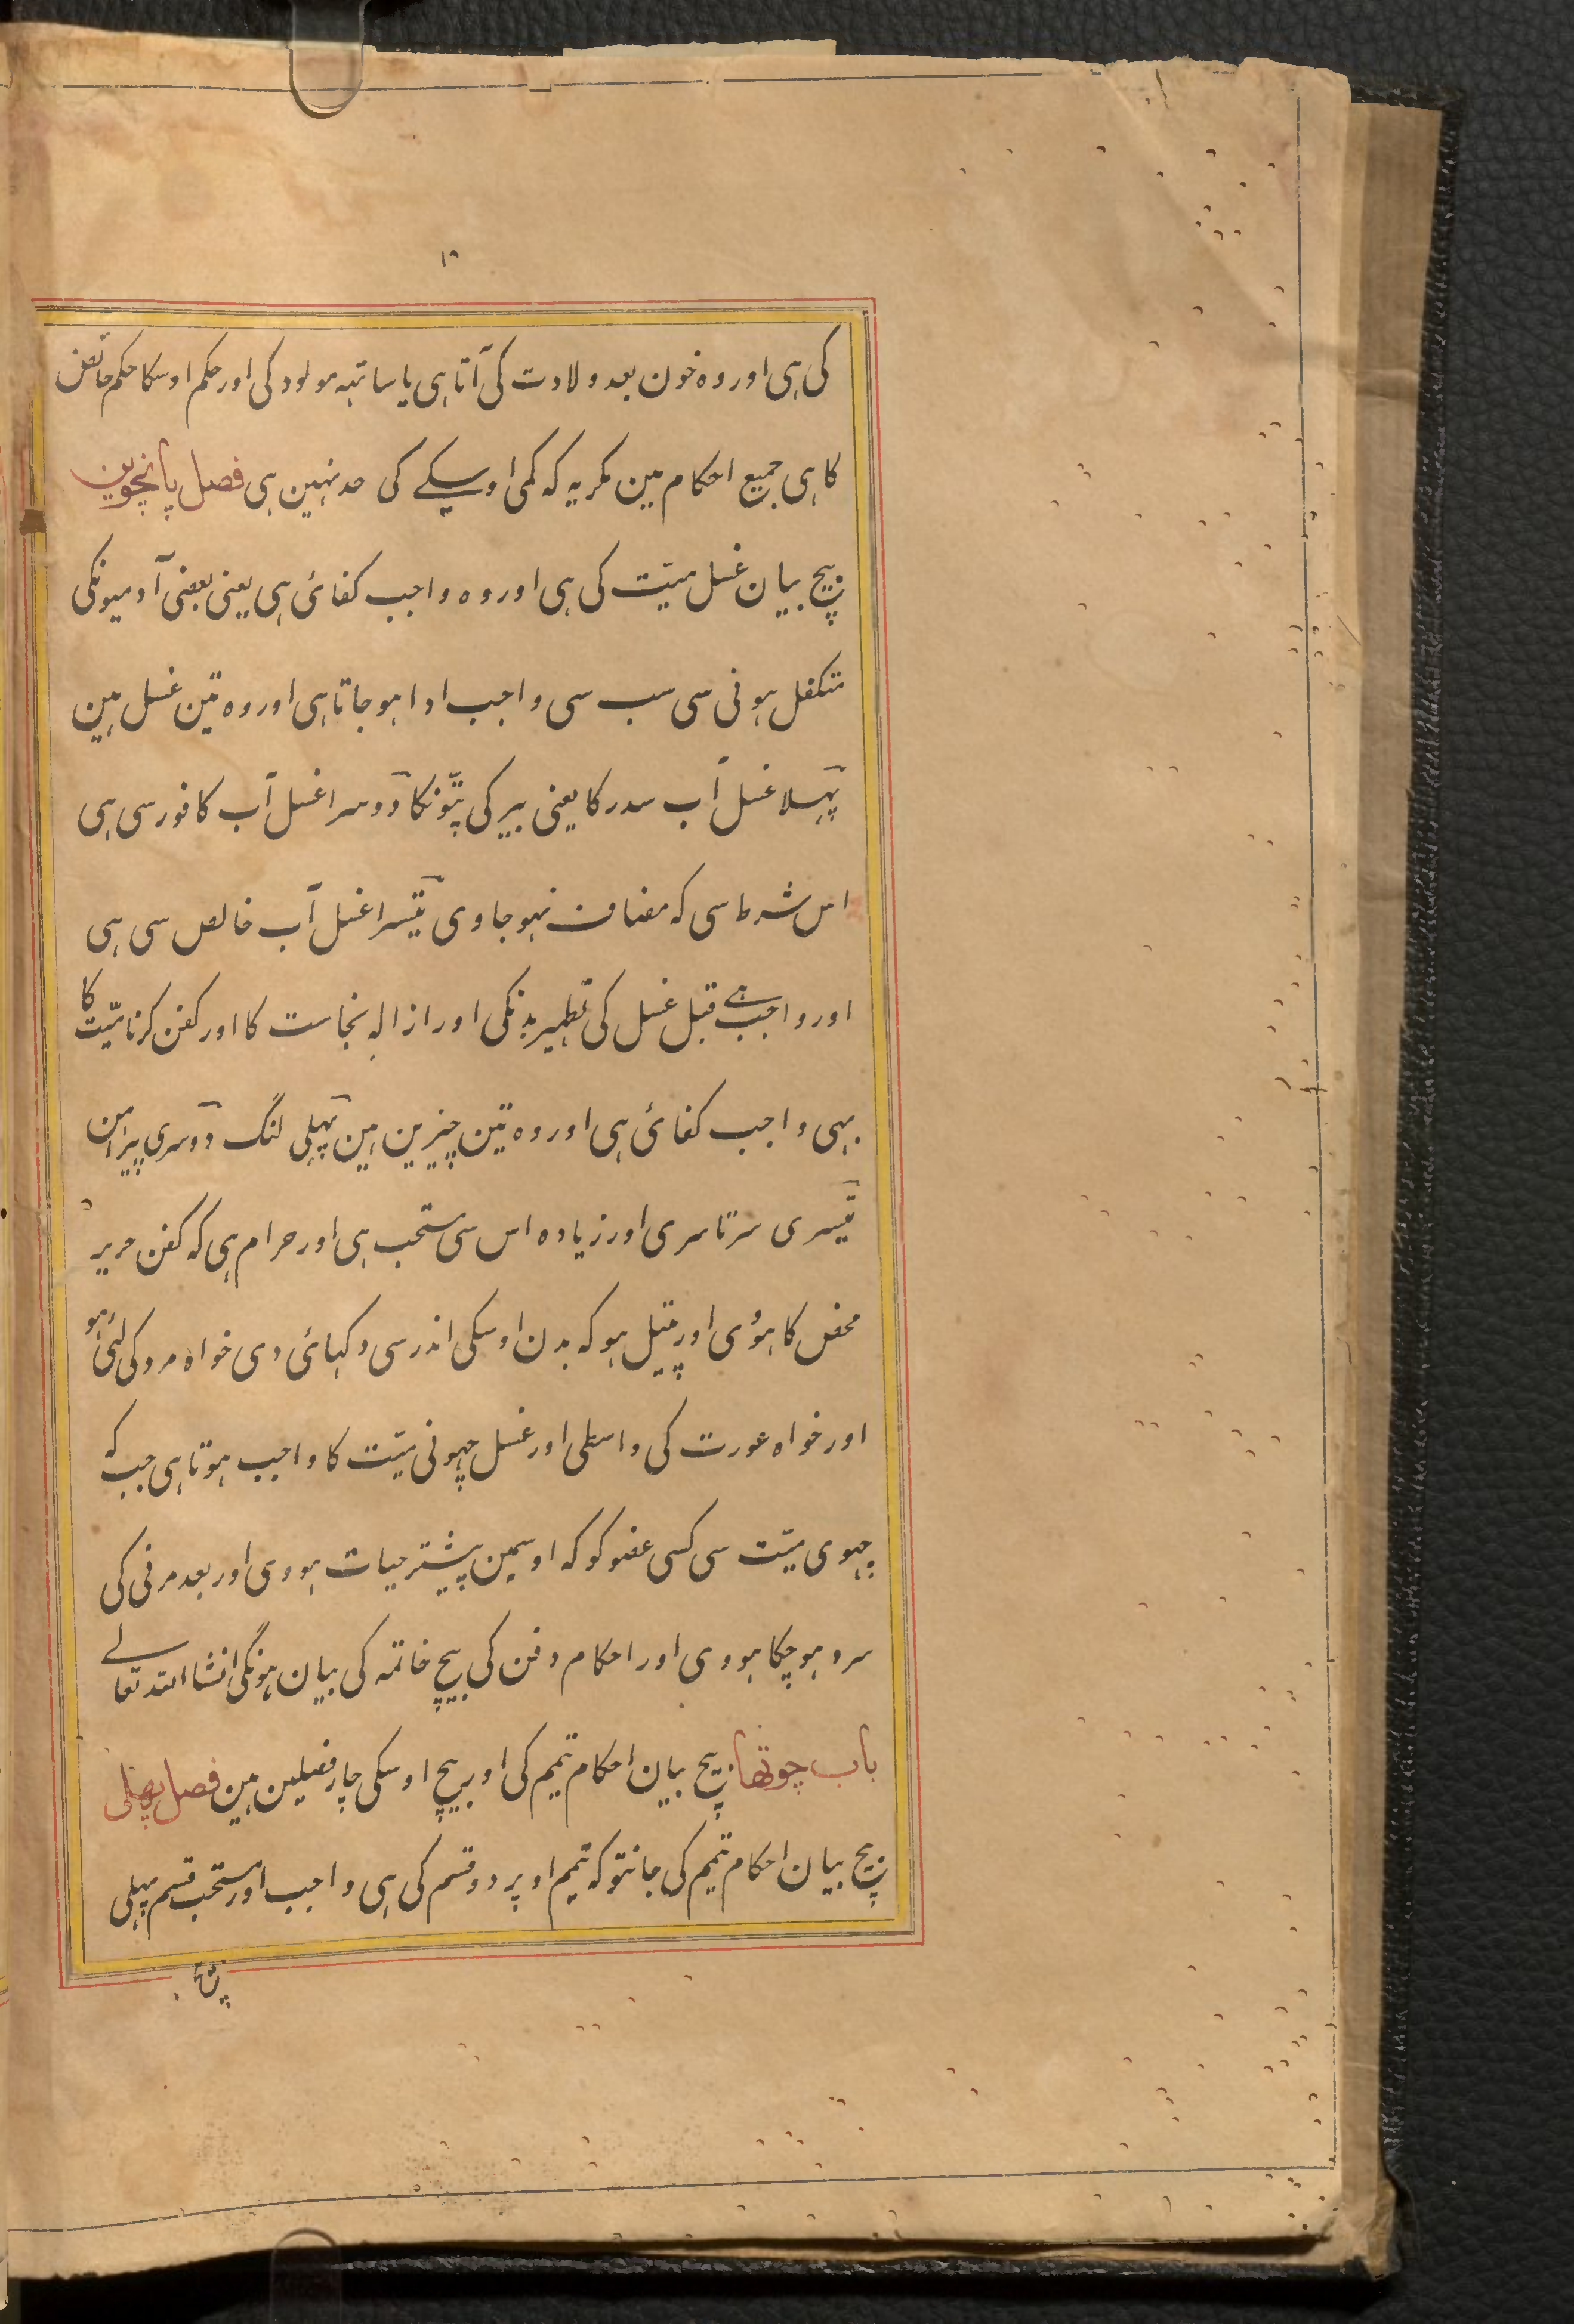 ۱۸
کی ہی اور وہ خون بعد ولادت کی آتا ہی یا ساتہہ مولود کی اور حکم اوسکا حکم حائض
کا ہی جمیع احکام مین مگر یہ کہ کمی اوسکے کی حد نہین ہی فصل پانچوین
بیچ بیان غسل میّت کی ہی اور وہ واجب کفائی ہی یعنی بعضی آدمیونکی
متکفل ہونی سی سب سی واجب ادا ہو جاتا ہی اور وہ تین غسل ہین
پہلا غسل آب سدر کا یعنی بیر کی پتّونکا دوسرا غسل آب کافور سی ہی
اس شرط سی کہ مضاف نہو جاوی تیسرا غسل آب خالص سی ہی
اور واجب ہے قبل غسل کی تطہیر بدنکی اور ازالہ نجاست کا اور کفن کرنا میّت کا
بہی واجب کفائی ہی اور وہ تین چیزین ہین پہلی لنگ دوسری پیراہن
تیسری سرتاسری اور زیادہ اس سی مستحب ہی اور حرام ہی کہ کفن حریر
محض کا ہوی اور پتیل ہو کہ بدن اوسکی اندر سی دکہائی دی خواہ مرد کی لئی ہو
اور خواہ عورت کی واسطی اور غسل چہونی میّت کا واجب ہوتا ہی جب کہ
چہوی میّت سی کسی عضو کو کہ اوسمین پیشتر حیات ہووی اور بعد مرنی کی
سرد ہو چکا ہووی اور احکام دفن کی بیچ خاتمہ کی بیان ہونگی انشا اللہ تعالے
باب چوتھا بیچ بیان احکام تیمم کی اور بیچ اوسکی چار فصلین ہین فصل پھلی
بیچ بیان احکام تیمم کی جانتو کہ تیمم اوپر دو قسم کی ہی واجب اور مستحب قسم پہلی
بیچ